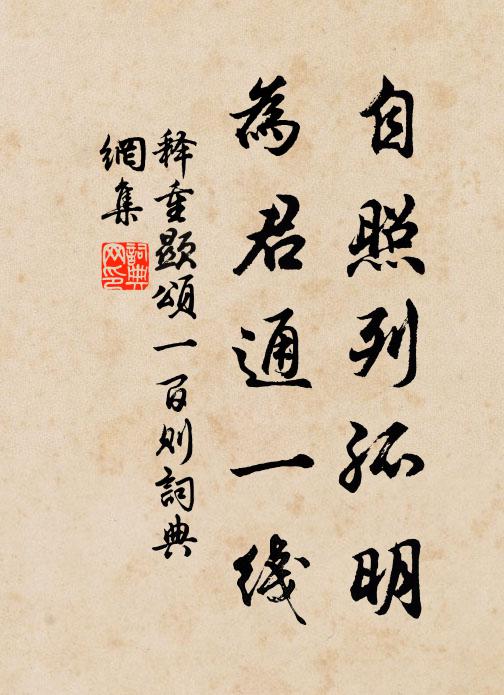 自照列孤明
為君通一线
释重顯頌一百则詞典
網集
詞典网印